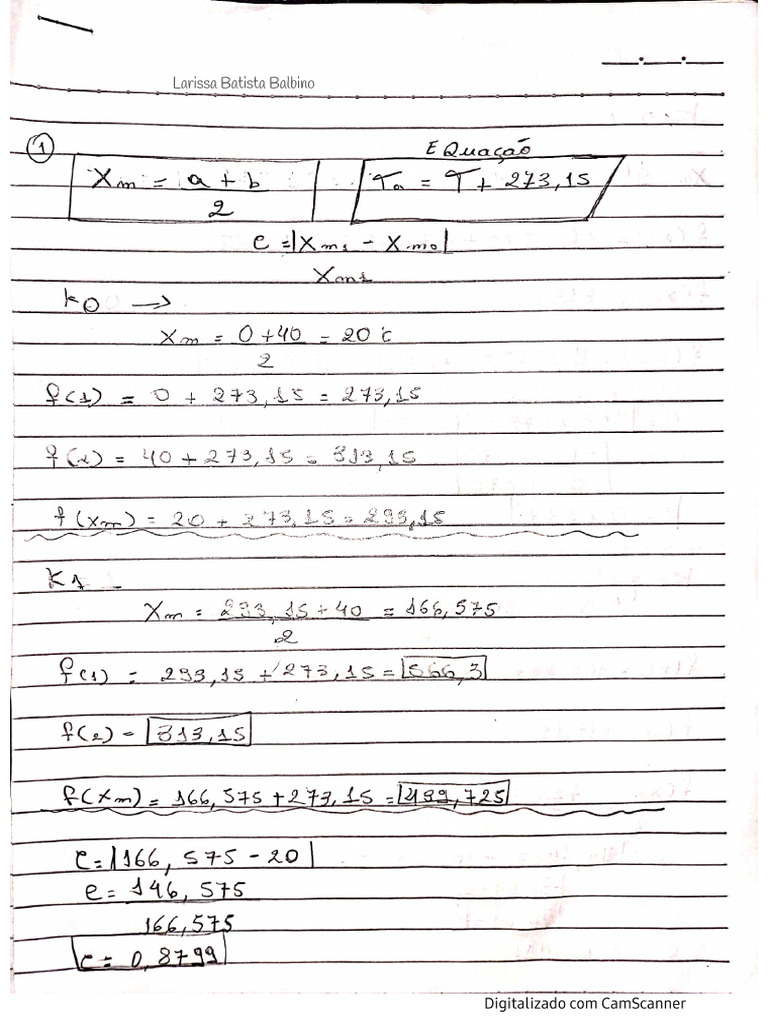 Larissa Batista Balbino
1
EQuação
Xm = a + b
2
Ta = T + 273,15
e = |Xm1 - Xm0|
Xm1
k0 →
Xm = 0 + 40 = 20 °c
2
f(1) = 0 + 273,15 = 273,15
f(2) = 40 + 273,15 = 313,15
f(Xm) = 20 + 273,15 = 293,15
K1 -
Xm = 293,15 + 40 = 166,575
2
f(1) = 293,15 + 273,15 = 566,3
f(2) = 313,15
f(Xm) = 166,575 + 273,15 = 439,725
e = |166,575 - 20|
e = 146,575
166,575
e = 0,8799
Digitalizado com CamScanner